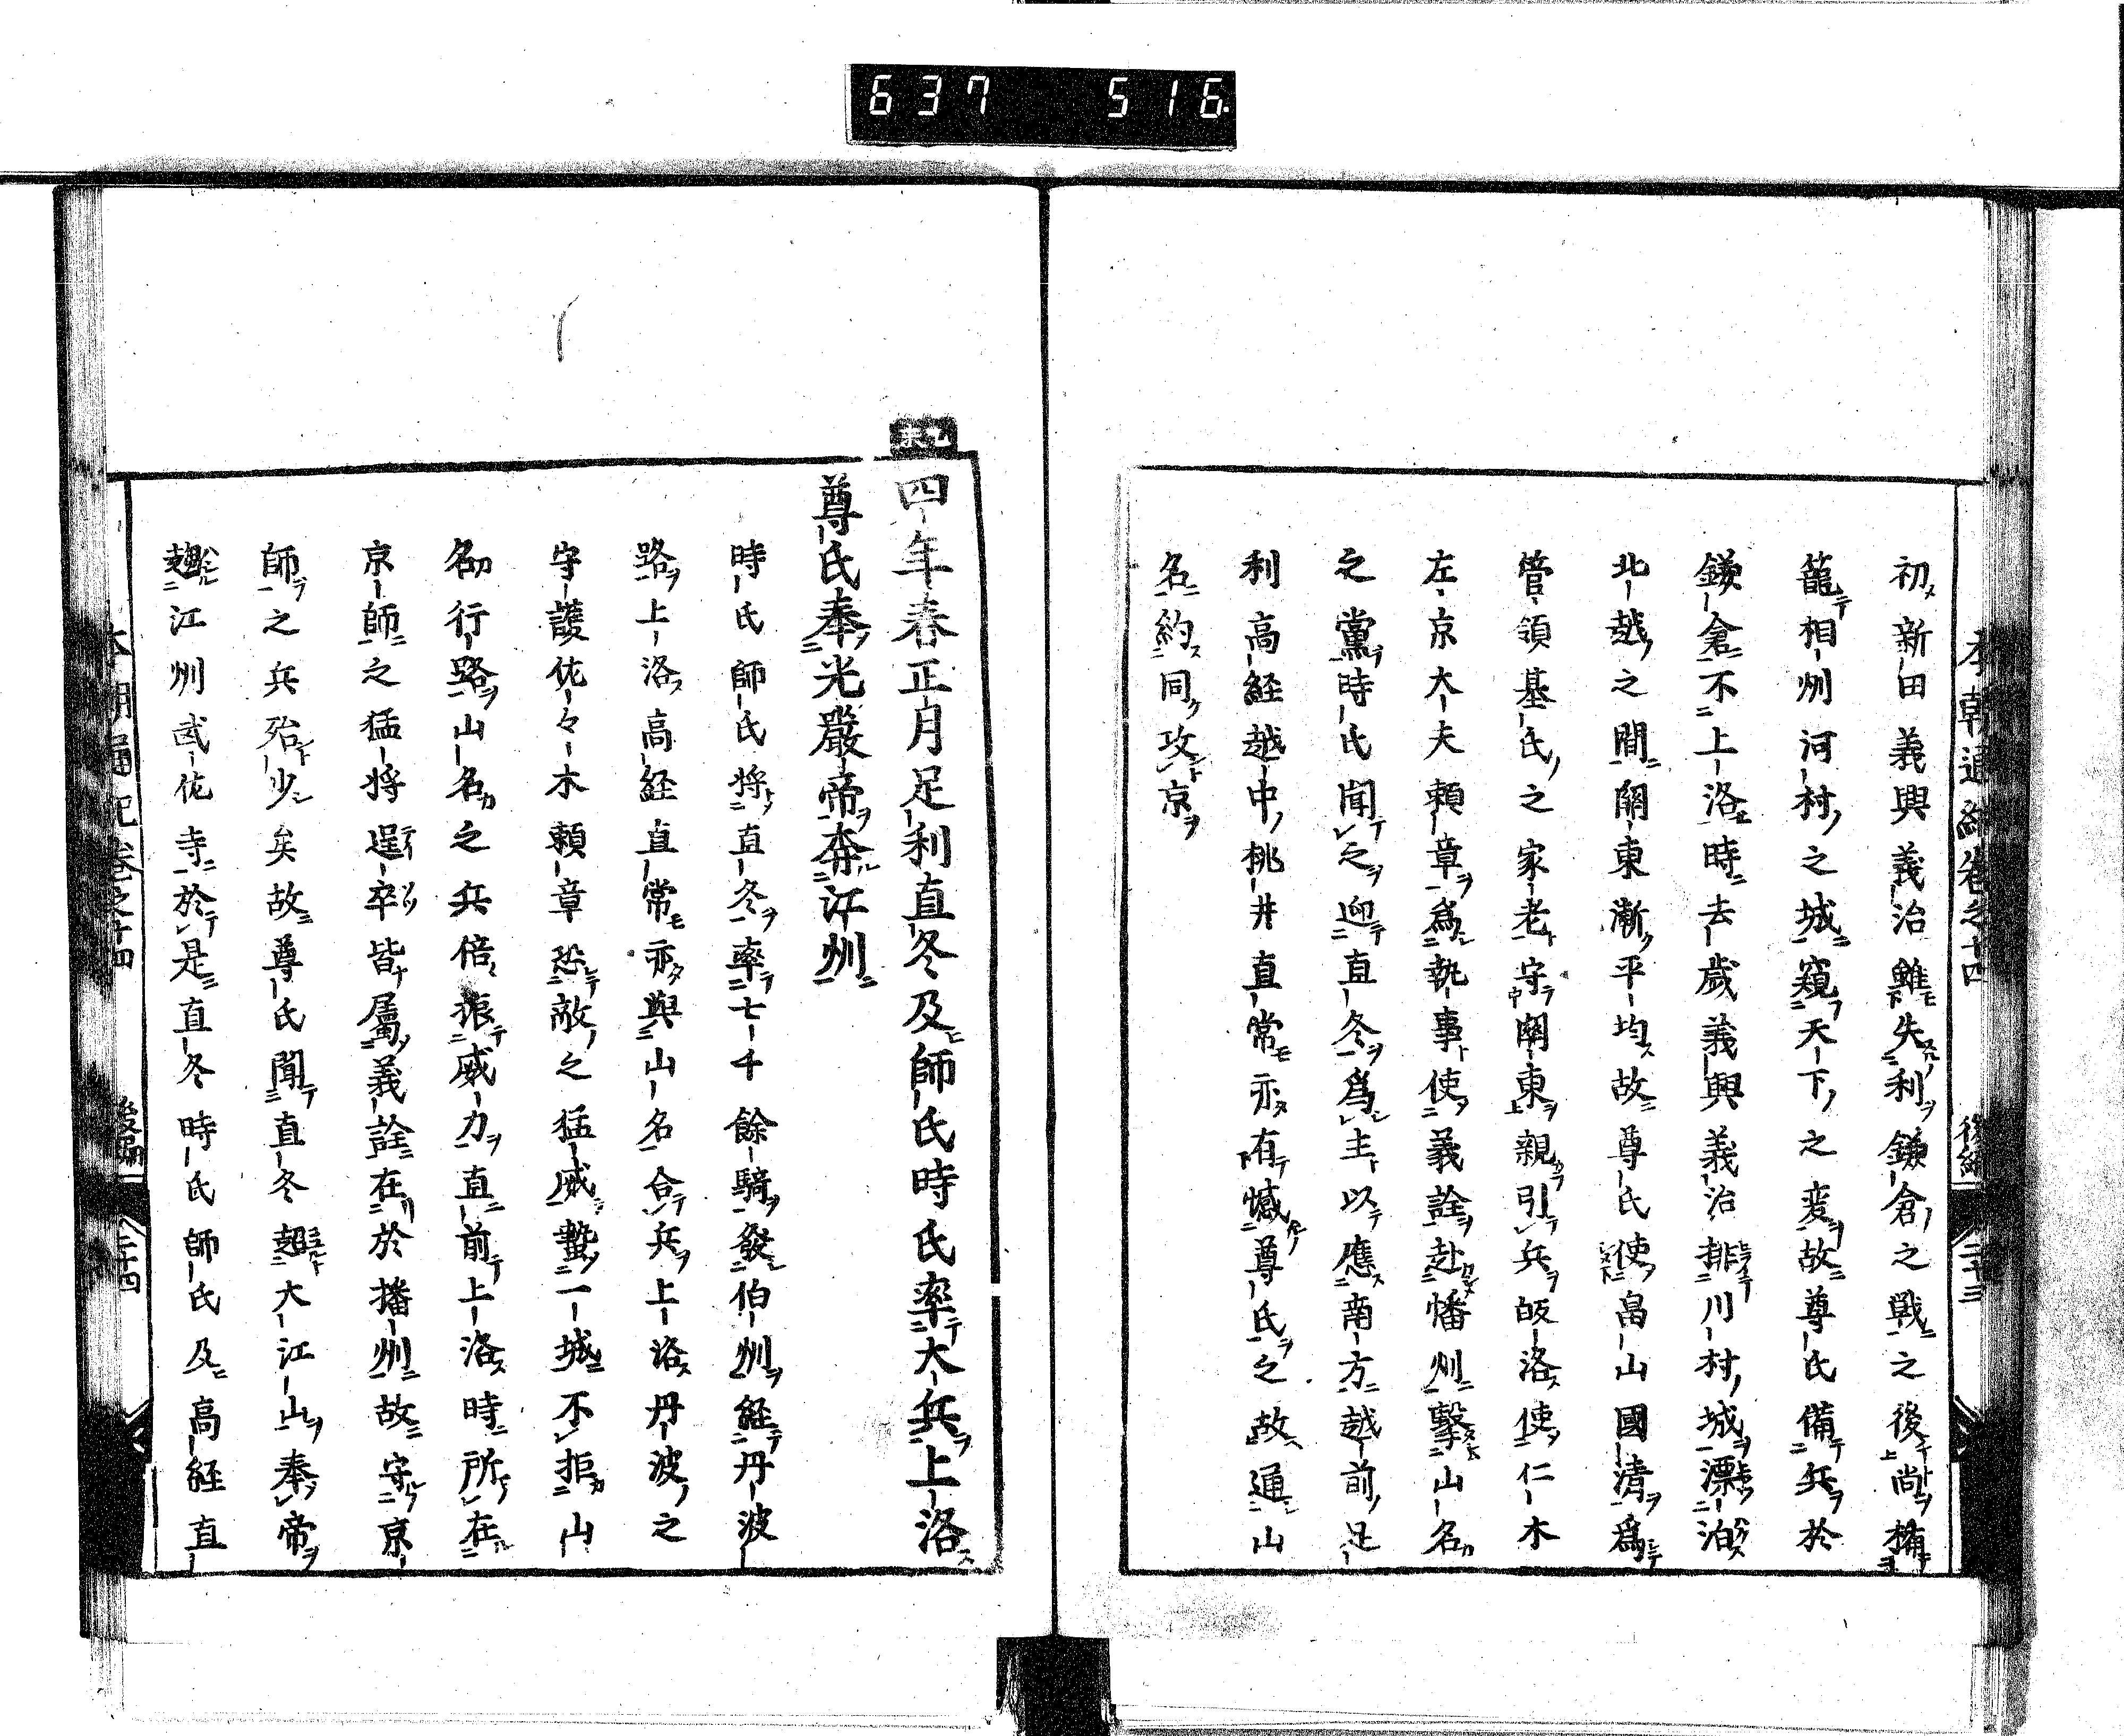 637 516
本朝通紀卷之十四 後編 二十三
初新田義興義治雖失利鎌倉之戰之後尚楯
籠相州河村之城窺天下之変故尊氏備兵於
鎌倉不上洛時去歳義興義治排川村城漂泊
北越之間關東漸平均故尊氏使畠山國清爲
管領基氏之家老守關東親引兵皈洛使仁木
左京大夫頼章爲執事使義詮赴幡州擊山名
之黨時氏聞之迎直冬爲主以應南方越前足
利高経越中桃井直常亦有憾尊氏之故通山
名約同攻京
乙未
四年春正月足利直冬及師氏時氏率大兵上洛
尊氏奉光嚴帝奔江州
時氏師氏将直冬率七千餘騎發伯州経丹波
路上洛高経直常亦與山名合兵上洛丹波之
守護佐々木頼章恐敵之猛威蟄一城不拒山
名劫行路山名之兵倍振威力直前上洛時所在
京師之猛将逞卒皆属義詮在於播州故守京
師之兵殆少矣故尊氏聞直冬超大江山奉帝
趣江州武佐寺於是直冬時氏師氏及高経直
本朝通紀卷之十四 後編 二十四